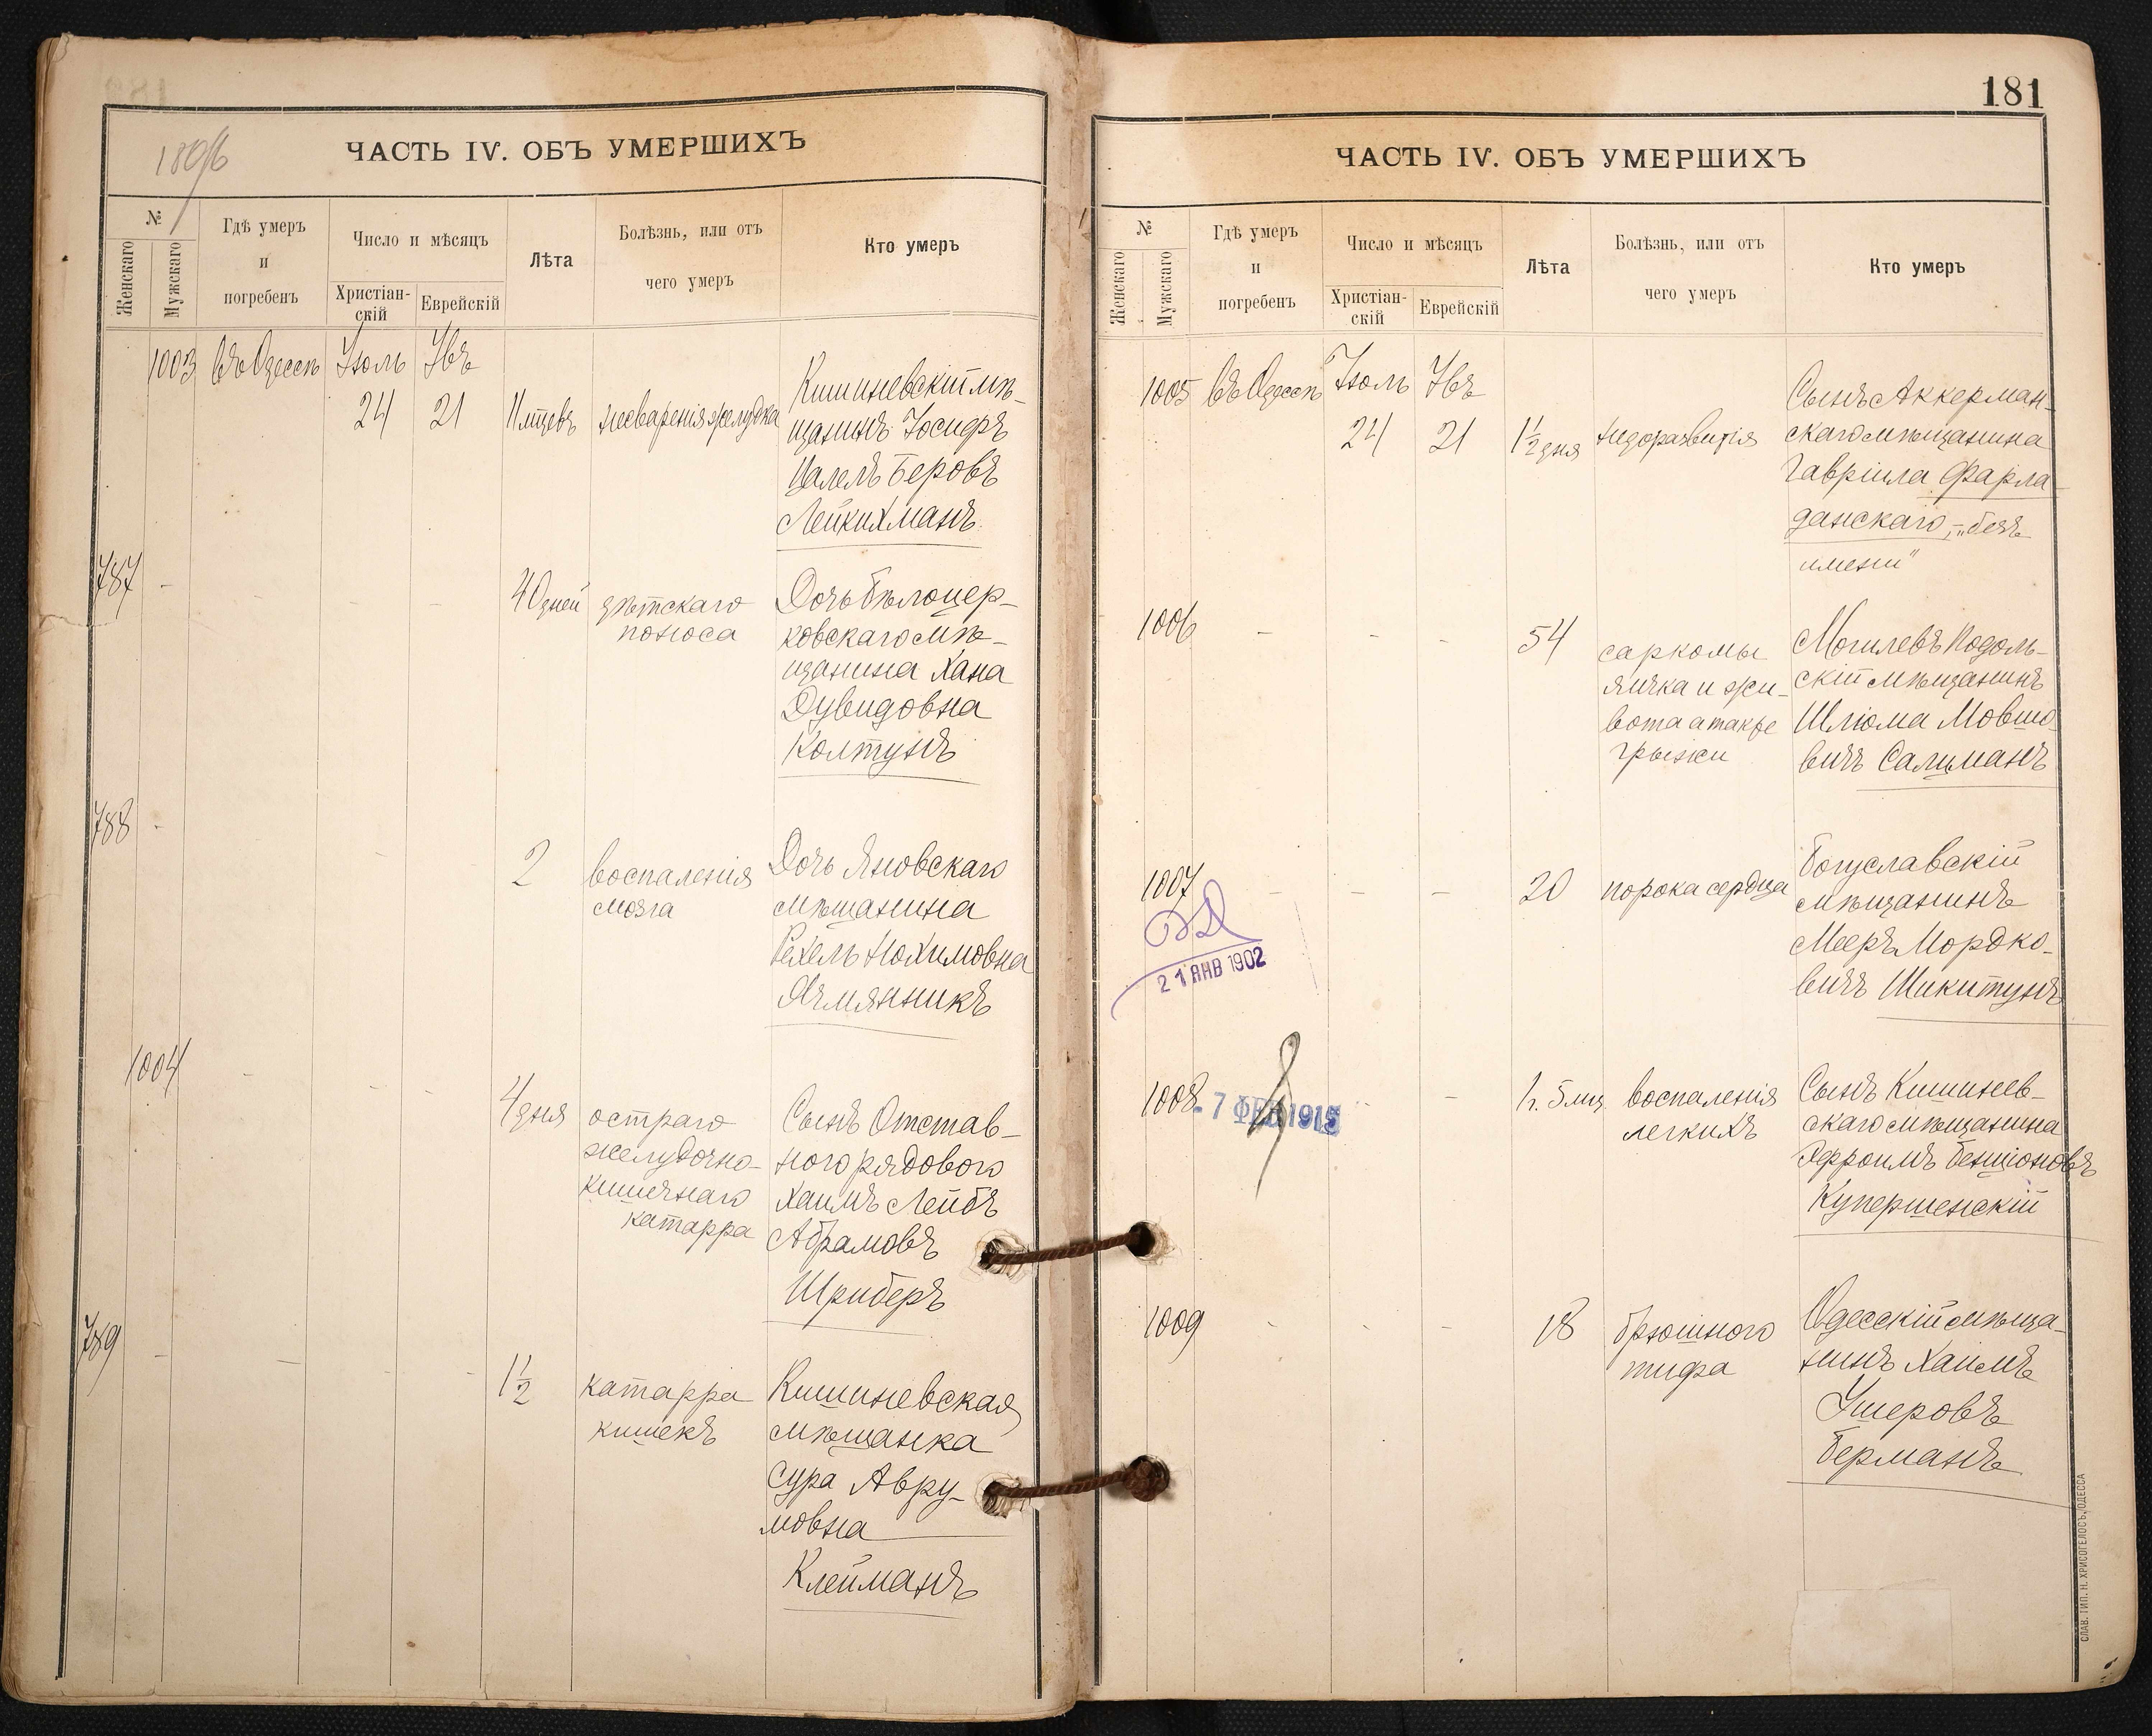 180/6
ЧАСТЬ IV. ОБЪ УМЕРШИХЪ
№
Женскаго
Мужскаго
Гдѣ умеръ
и
погребенъ
Число и мѣсяцъ
Христіан-
скій
Еврейскій
Лѣта
Болѣзнь, или отъ
чего умеръ
Кто умеръ
1003 въ Одессѣ Іюль Увъ
24 21 11 мцевъ несваренія желудка
Кишиневскій мѣ-
щанинъ Іосифъ
Цалель Беровъ
Лейкихманъ
787 - - - - 40 дней дѣтскаго
поноса
Дочь Бѣлоцер-
ковскаго мѣ-
щанина Хана
Дувидовна
Колтунъ
788 - - - - 2 воспаленія
мозга
Дочь Яновскаго
мѣщанина
Рехель Нохимовна
Ячмянникъ
1004 - - - 4 дня остраго
желудочно-
кишечнаго
катарра
Сынъ Отстав-
ного рядового
Хаимъ Лейбъ
Абрамовъ
Шриберъ
789 - - - - 1½ катарра
кишекъ
Кишиневская
мѣщанка
Сура Авру-
мовна
Клейманъ
181
ЧАСТЬ IV. ОБЪ УМЕРШИХЪ
№
Женскаго
Мужскаго
Гдѣ умеръ
и
погребенъ
Число и мѣсяцъ
Христіан-
скій
Еврейскій
Лѣта
Болѣзнь, или отъ
чего умеръ
Кто умеръ
1005 въ Одессѣ Іюль Увъ
24 21 1½ дня недоразвитія
Сынъ Аккерман-
скаго мѣщанина
Гавріила Фарла-
данскаго, - "безъ
имени"
1006 - - - 54 саркомы
яичка и жи-
вота а также
грыжи
Могилевъ Подоль-
скій мѣщанинъ
Шлiома Мовшо-
вичъ Салцманъ
1007 - - - 20 порока сердца
Богуславскій
мѣщанинъ
Мееръ Мордко-
вичъ Шикитунъ
21 ЯНВ 1902
1008 - 7 ФЕВ 1915
- 1 г. 5 мц воспаленія
легкихъ
Сынъ Кишинев-
скаго мѣщанина
Эфроимъ Бенціоновъ
Купершенскій
1009 - - - 18 брюшного
тифа
Одесскій мѣща-
нинъ Хаимъ
Ушеровъ
Берманъ
СЛАВ. ТИП. Н. ХРИСОГЕЛОСЪ, ОДЕССА